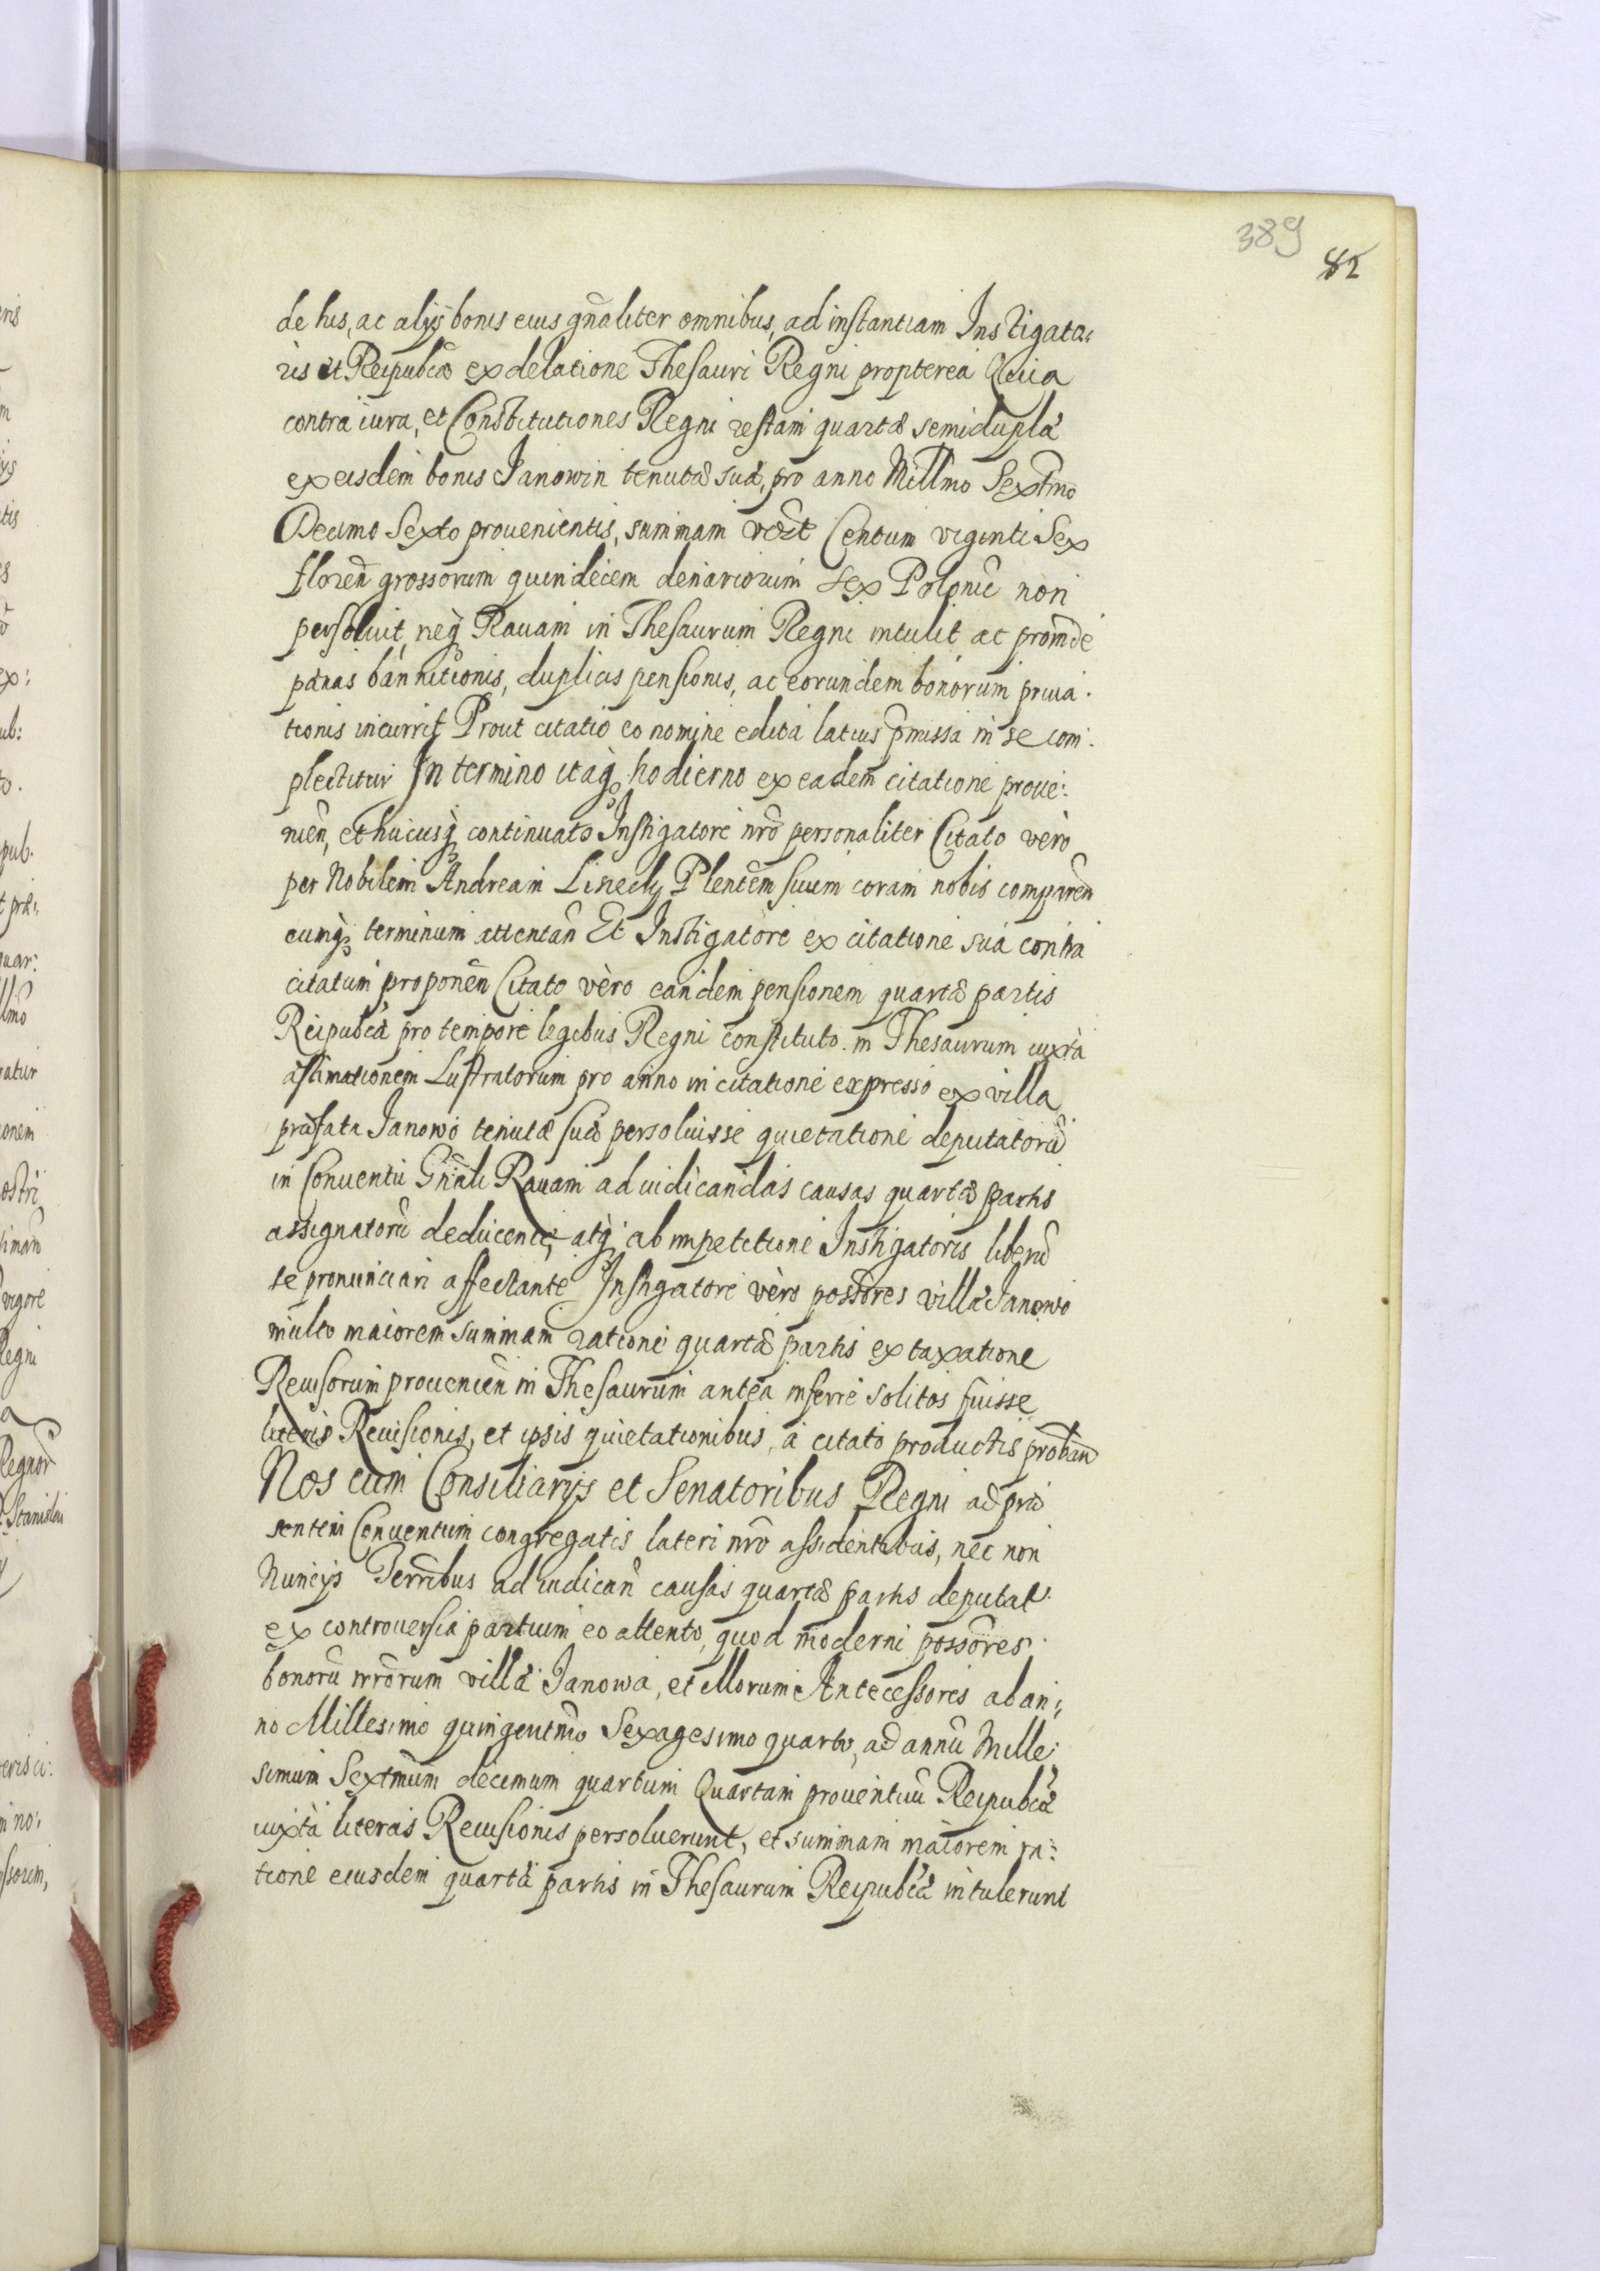 389
82
de his, ac alijs bonis eius gñaliter omnibus, ad instantiam Instigato:
ris et Reipublcæ ex delatione Thesauri Regni propterea Quia
contra iura, et Constitutiones Regni restam quartæ semiduplæ
ex eisdem bonis Janowin tenutæ suæ, pro anno Millmo Sextmo
Decimo Sexto prouenientis, summam vdzt Centum viginti Sex
floreñ grossorum quindecem denariorum sex Polonic non
persoluit, neq₃ Rauam in Thesaurum Regni intulit, ac proinde
pænas bannitionis, duplicis pensionis, ac eorundem bonorum priua:
tionis incurrit Prout citatio eo nomine edita latius pmissa in se com:
plectitur In termino itaq₃ hodierno ex eadem citatione proue:
nieñ, et hucusq₃ continuato Instigatore nro personaliter Citato vero
per Nobilem Andream Plentem suum coram nobis compareñ
eumq₃ terminum attentañ Et Instigatore ex citatione sua contra
citatum proponeñ Citato vero eandem pensionem quartæ partis
Reipubcæ pro tempore legibus Regni constituto in Thesaurum iuxta
æstimationem Lustratorum pro anno in citatione expresso ex villa
præfata Janowo tenutæ suæ persoluisse quietatione deputatorũ
in Conuentu Gñali Rauam ad iudicandas causas quartæ partis
assignatorũ deducente, atq₃ ab impetitione Instigatoris liberũ
se pronunciari affectante Instigatore vero possores villæ Janowo
multo maiorem summam ratione quartæ partis ex taxatione
Reuisorum prouenieñ in Thesaurum antea inferre solitos fuisse
literis Reuisionis, et ipsis quietationibus, a citato productis probañ
Nos cum Consiliarijs et Senatoribus Regni ad præ
sentem Conuentum congregatis lateri nro assidentibus, nec non
Nuncijs Terribus ad iudicañ causas quartæ partis deputat:
ex controuersia partium eo attento, quod moderni possores
bonorũ nrorum villæ Janowa, et illorum Antecessores ab an:
no Millesimo quingentmo Sexagesimo quarto, ad annũ Mille:
simum Sextmum decimum quartum Quartam prouentuũ Reipubcæ
iuxta literas Reuisionis persoluerunt, et summam maiorem ra:
tione eiusdem quartæ partis in Thesaurum Reipubcæ intulerunt